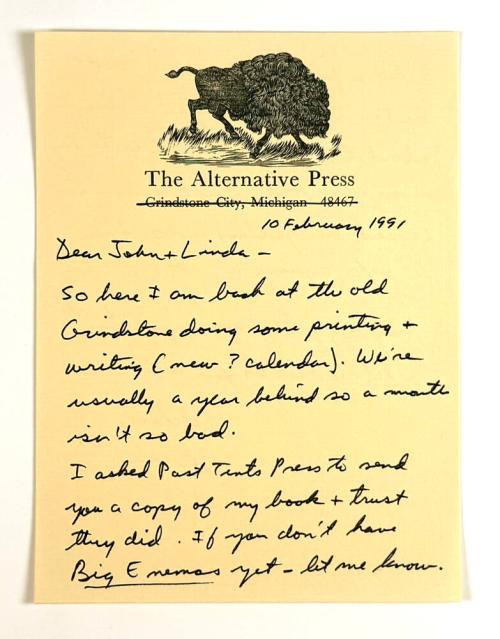 The Alternative Press
Grindstone City, Michigan 48467
10 February 1991
Dear John + Linda -
So here I am back at the old
Grindstone doing some printing +
writing (new ? calendar). We're
usually a year behind so a month
isn't so bad.
I asked Past Tents Press to send
you a copy of my book + trust
they did. If you don't have
Big Enemas yet - let me know.